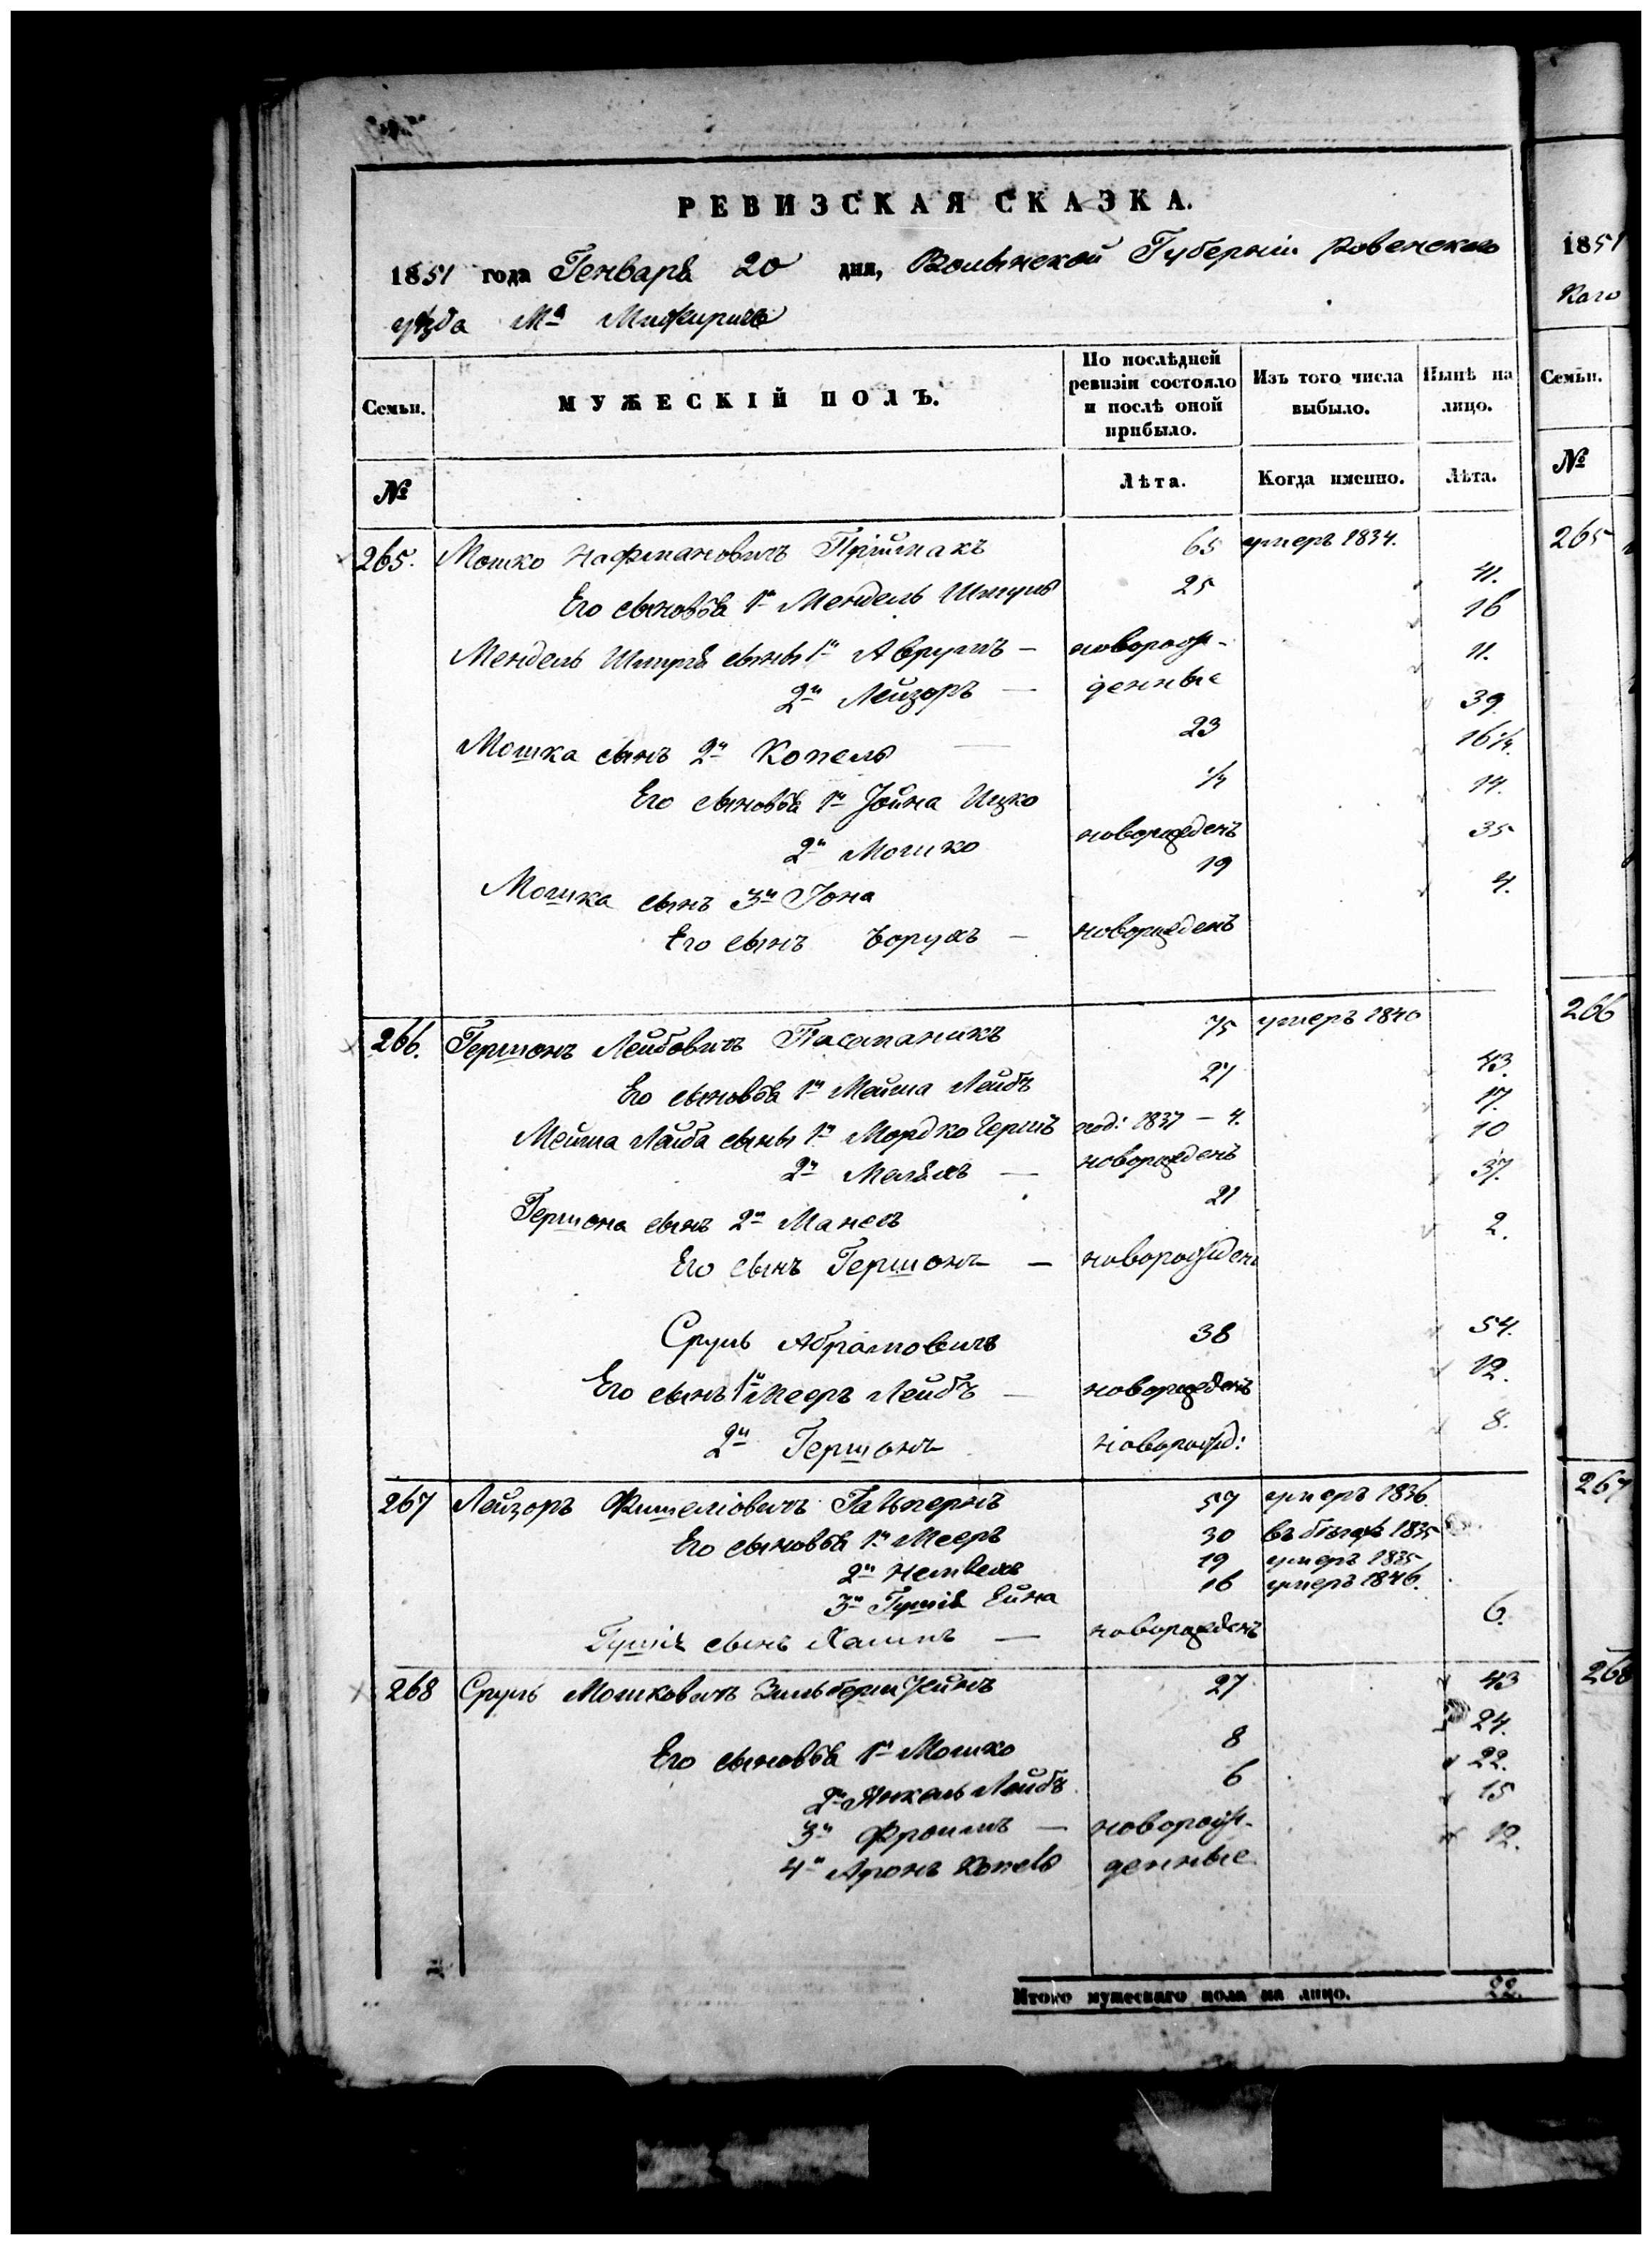 РЕВИЗСКАЯ СКАЗКА.
1851 года Генваря 20 дня, Волынской Губерніи Ровенского
уѣзда Мѣ Межиричъ
Семьи.
МУЖЕСКІЙ ПОЛЪ.
По послѣдней ревизіи состояло и послѣ оной прибыло.
Изъ того числа выбыло.
Нынѣ на лицо.
№
Лѣта.
Когда именно.
Лѣта.
265. Мошко Нафтановичъ Пріймакъ 65 умеръ 1834.
Его сыновья 1й Мендель Шмуль 25 41.
Мендель Шмуля сыны 1й Аврумъ — новорож- 16
2й Лейзоръ — денные 11.
Мошка сынъ 2й Копель — 23 39.
Его сыновья 1й Іойна Ицко ½ 16½.
2й Мошко новорожденъ 14.
Мошка сынъ 3й Іона 19 35
Его сынъ Борухъ — новорожденъ 4.
266. Гершонъ Лейбовичъ Пасатаникъ 75 умеръ 1840
Его сыновья 1й Мейша Лейбъ 27 43.
Мейша Лейба сыны 1й Мордко Гершъ род: 1837 — 4. 17.
2й Мелехъ — новорожденъ 10
Гершона сынъ 2й Манесъ 21 37.
Его сынъ Гершонъ — новорожденъ 2.
Сруль Абрамовичъ 38 54.
Его сынъ 1й Мееръ Лейбъ — новорожденъ 12.
2й Гершонъ новорожд: 8.
267 Лейзоръ Фишеліовичъ Гальперинъ 57 умеръ 1836.
Его сыновья 1й Мееръ 30 въ бѣгахъ 1835
2й 19 умеръ 1835
3й Гушія Ейна 16 умеръ 1846.
Гушія сынъ Хаимъ — новорожденъ 6.
268 Сруль Мошковичъ Зильберштейнъ 27 43
Его сыновья 1й Мошко 8 24.
2й Янкель Лейбъ 6 22.
3й Фроимъ — новорож- 15
4й Аронъ Копель денные 12.
Итого мужескаго пола на лицо. 22.
1851
Каго
Семьи.
№
265
266
267
268